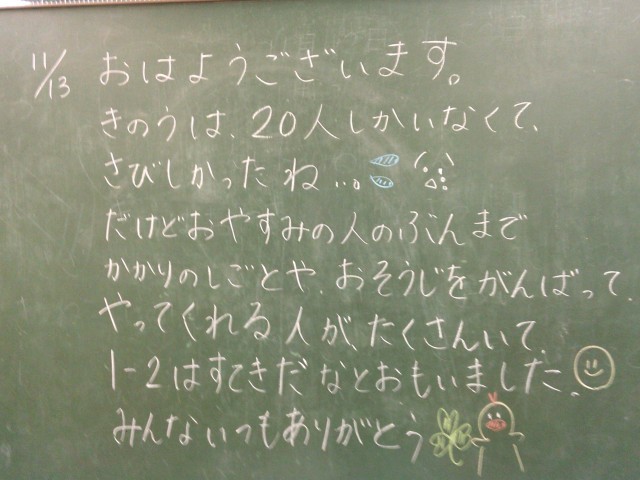 11/13 おはようございます。
きのうは、20人しかいなくて、
さびしかったね…。
だけどおやすみの人のぶんまで
かかりのしごとや、おそうじをがんばって、
やってくれる人が、たくさんいて、
1-2はすてきだなとおもいました。
みんないつもありがとう